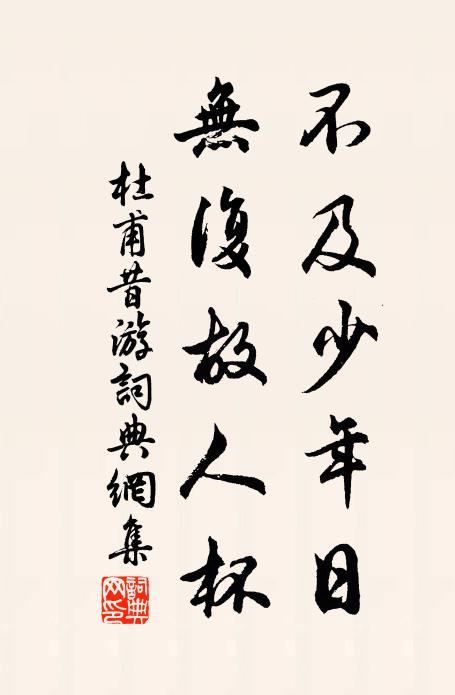 不及少年日
無復故人杯
杜甫昔游詞典網集
詞典網印